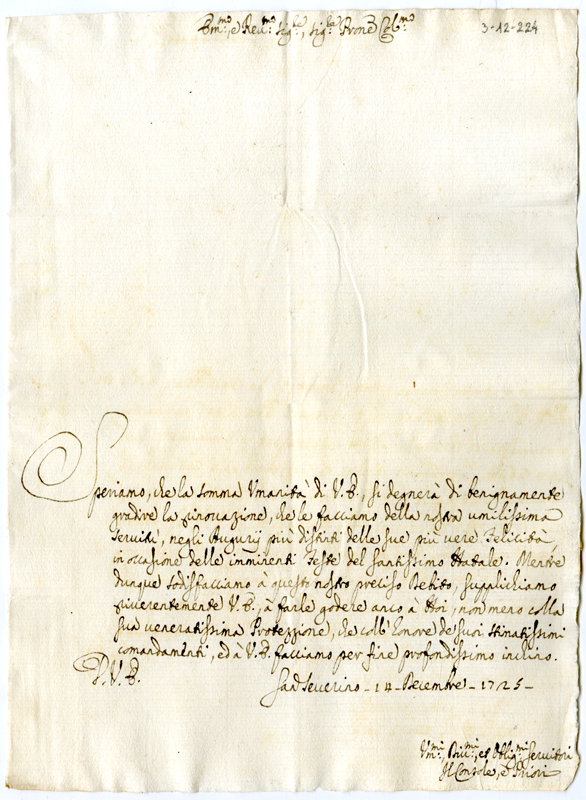 Em.mo, e Reu.mo Sig.re, Sig.re Prone Col.mo
3-12-224
Speriamo, che la somma Vmanità di V.E., si degnerà di benignamente
gradire la rinouazione, che le facciamo della nostra umilissima
Seruitù, negli Augurij più distinti delle sue più vere Felicità
in occasione delle imminenti Feste del Santissimo Natale. Mentre
dunque sodisfacciamo a questo nostro preciso Debito, supplichiamo
riuerentemente V.E., à farle godere anco à Noi, non meno colla
sua veneratissima Protezzione, che coll'honore de suoi stimatissimi
comandamenti, ed à V.E. facciamo per fine profondissimo inchino.
D.V.E.
San Seuerino - 14 - Decembre - 1725 -
Vmi.mi, Diu.mi, et Oblig.mi Seruitori
Il Console, e Priori